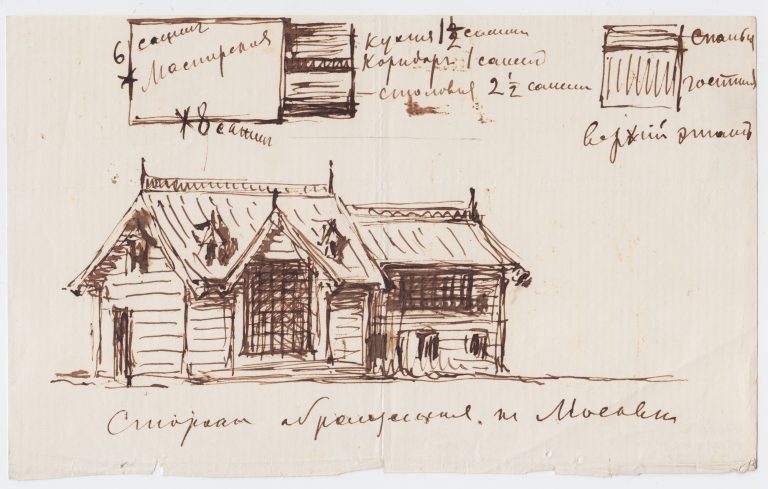 6 сажинъ
Мастерская
8 сажин
Кухня 1 1/2 сажини
Коридоръ 1 сажен
столовая 2 1/2 сажени
спальн
гостиная
верхній этажъ
Сторона обращенная к Москвы